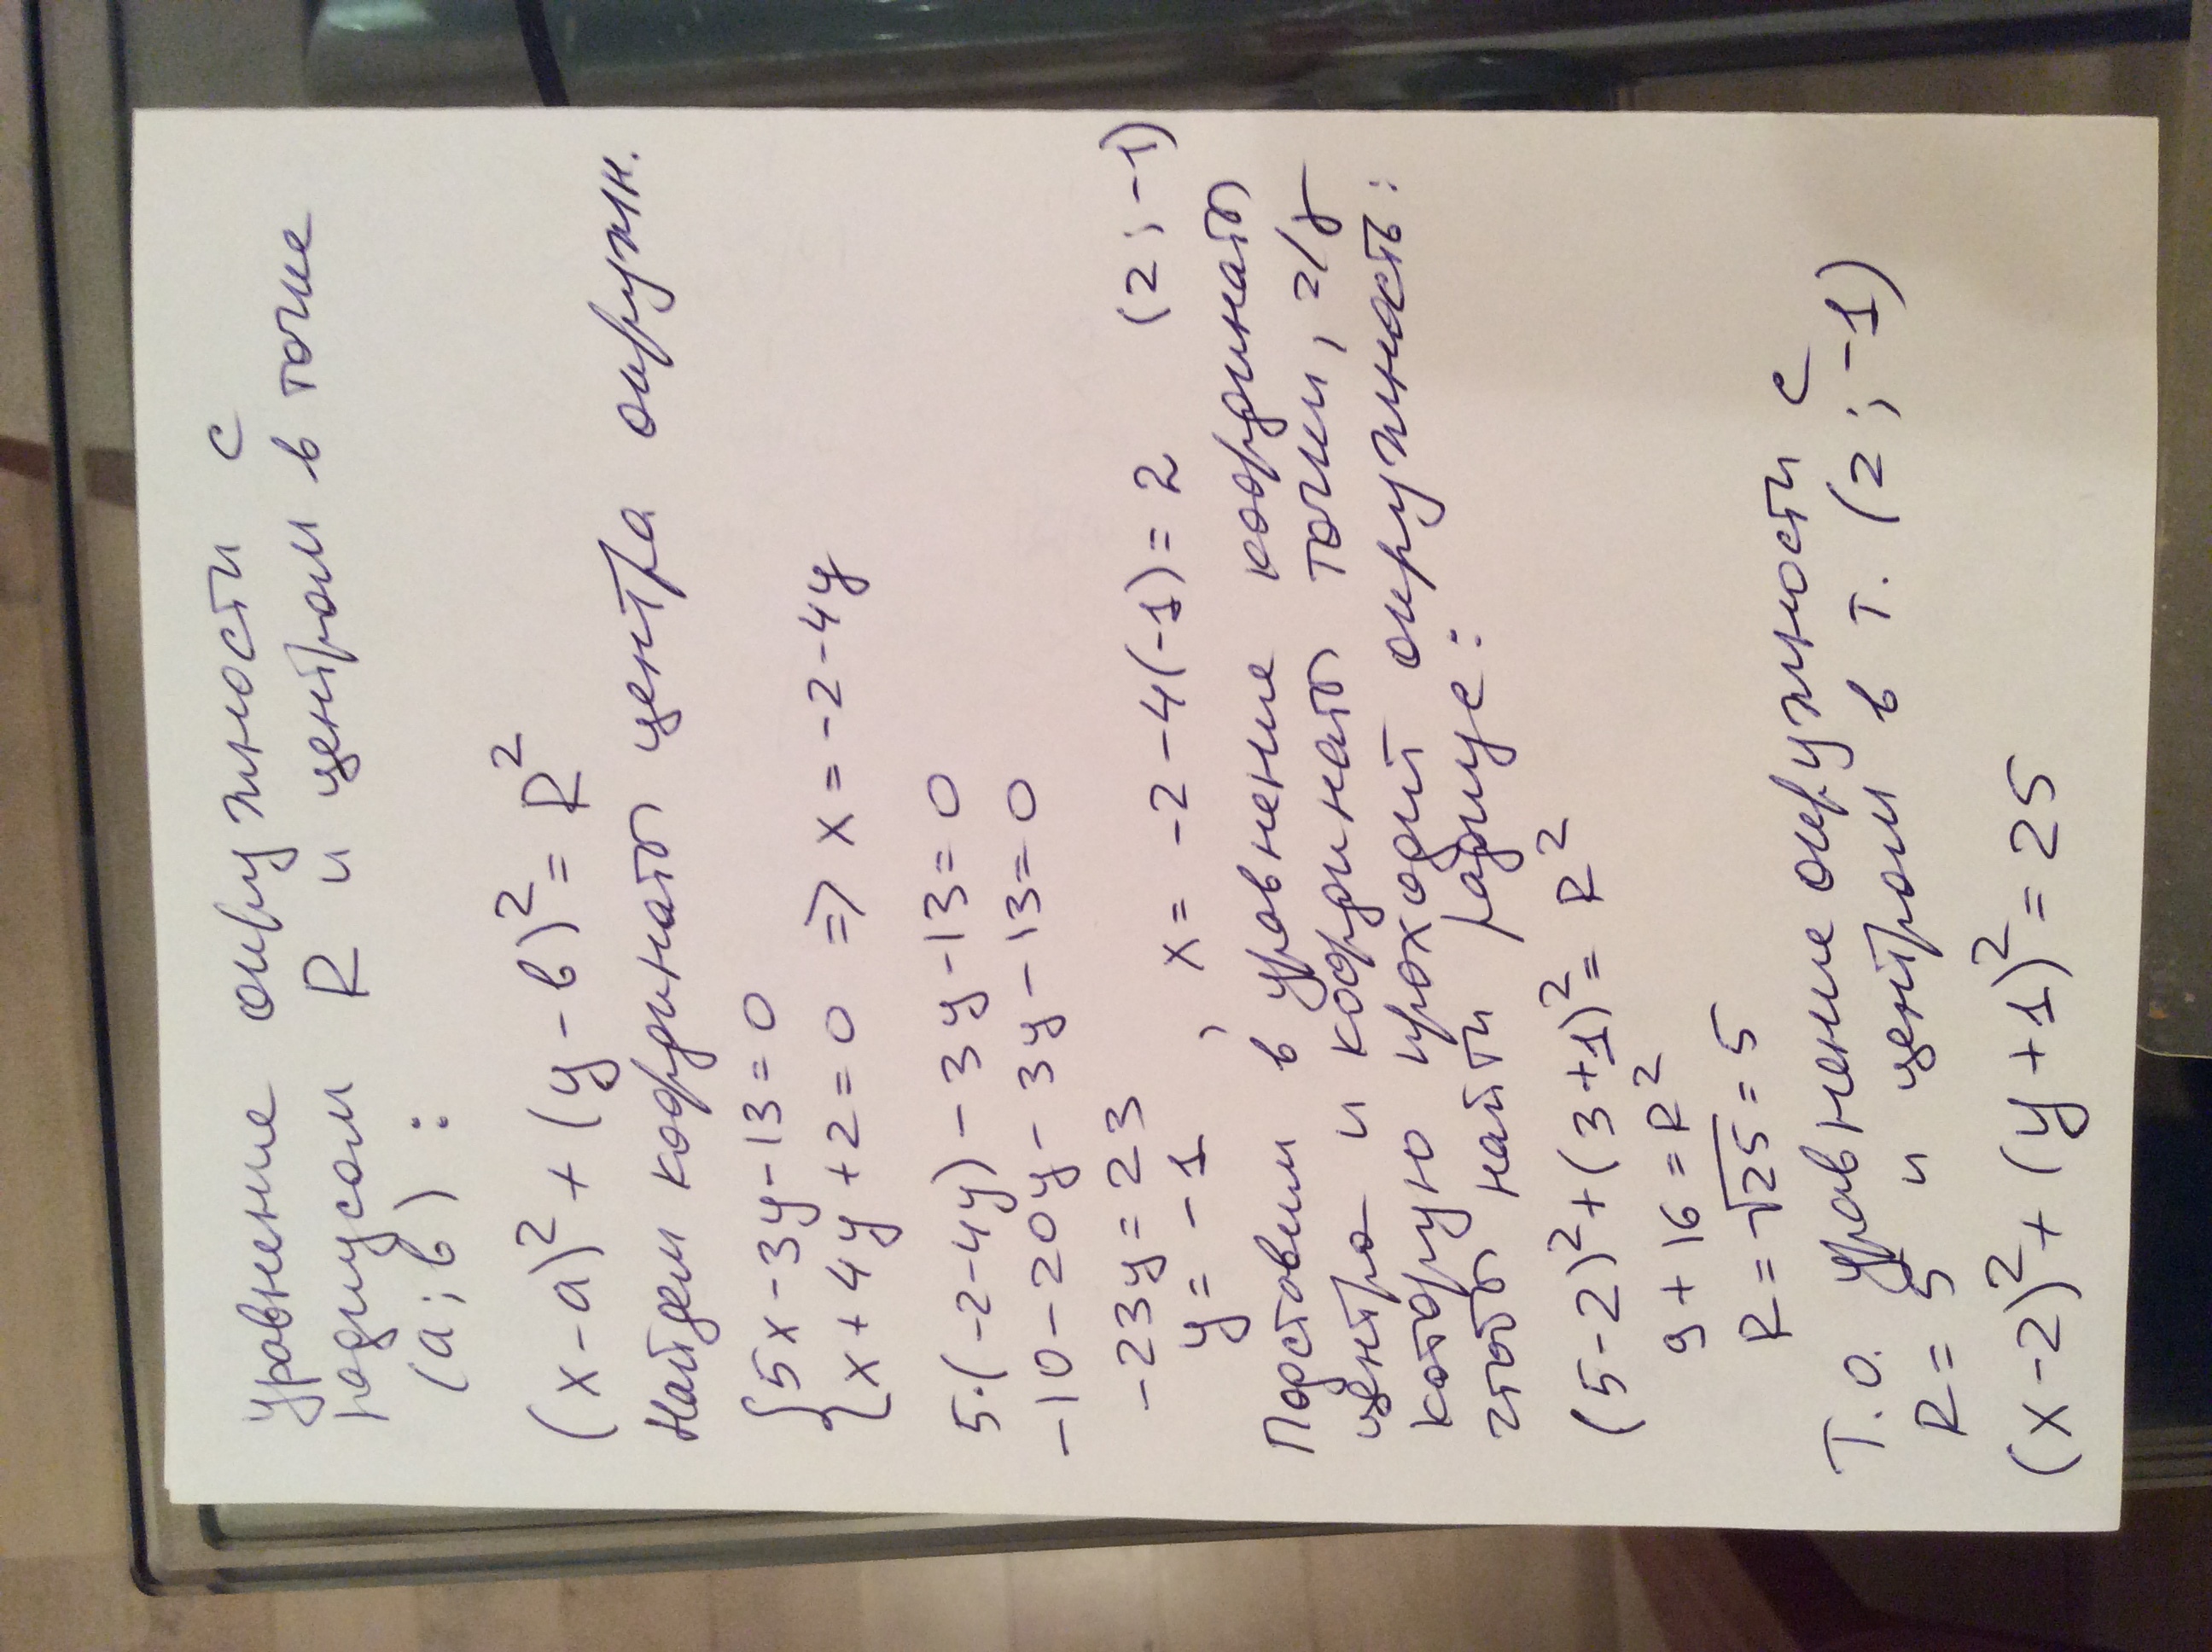 Уравнение окружности с
радиусом R и центром в точке
(a; b) :
(x-a)² + (y-b)² = R²
Найдем координаты центра окружн.
{5x-3y-13=0
{x+4y+2=0 => x=-2-4y
5·(-2-4y)-3y-13=0
-10-20y-3y-13=0
-23y=23
y=-1, x=-2-4(-1)=2 (2;-1)
Подставим в уравнение координаты
центра и координаты точки, ч/з
которую проходит окружность:
чтобы найти радиус:
(5-2)²+(3+1)²=R²
9+16=R²
R=√25=5
Т.о. уравнение окружности с
R=5 и центром в т. (2;-1)
(x-2)²+(y+1)²=25